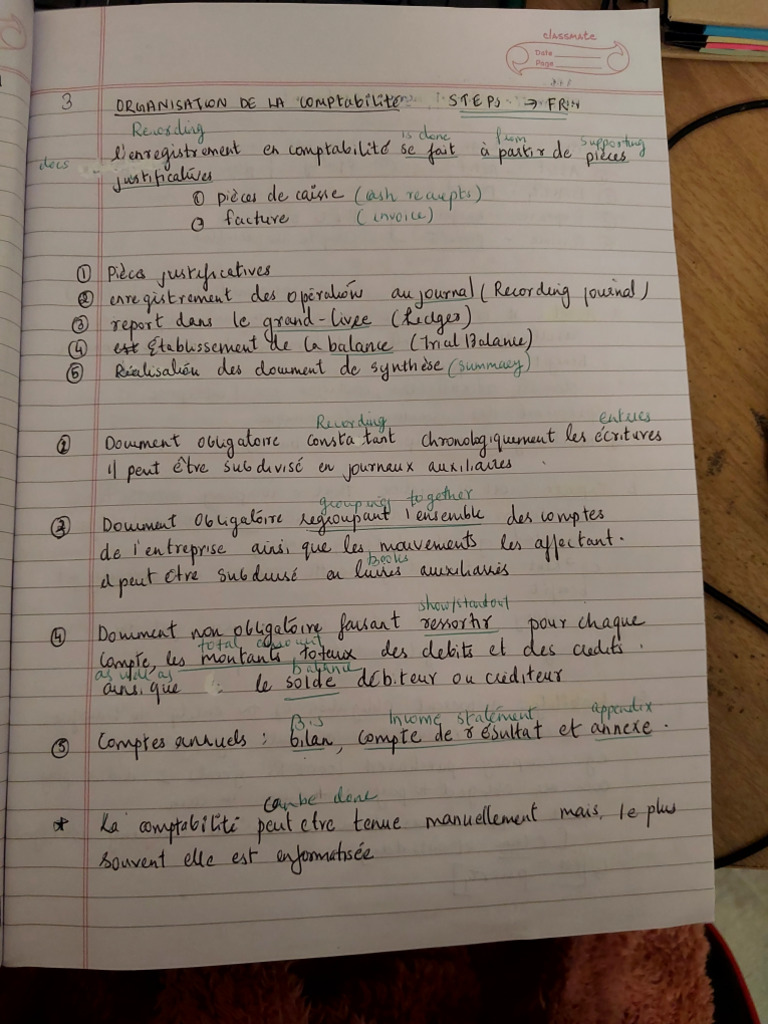 classmate
Date
Page
3 ORGANISATION DE LA COMPTABILITÉ STEPS → FRIN
Recording is done from supporting
l'enregistrement en comptabilité se fait à partir de pièces
docs
justificatives
① pièces de caisse (cash receipts)
② facture (invoice)
① Pièces justificatives
② enregistrement des opérations au journal (Recording journal)
③ report dans le grand-livre (Ledger)
④ Établissement de la balance (Trial Balance)
⑤ Réalisation des document de synthèse (summary)
Recording enteries
② Document obligatoire constatant chronologiquement les écritures
il peut être subdivisé en journaux auxiliaires
grouping together
③ Document obligatoire regroupant l'ensemble des comptes
de l'entreprise ainsi que les mouvements les affectant.
Books
il peut être subdivisé en livres auxiliaires
show/standout
④ Document non obligatoire faisant ressortir pour chaque
total amount
compte, les montants totaux des debits et des credits.
as well as balance
ainsi que : le solde débiteur ou créditeur
B.S Income statement appendix
⑤ Comptes annuels : bilan, compte de résultat et annexe.
can be done
* La comptabilité peut etre tenue manuellement mais, le plus
souvent elle est enformatisée